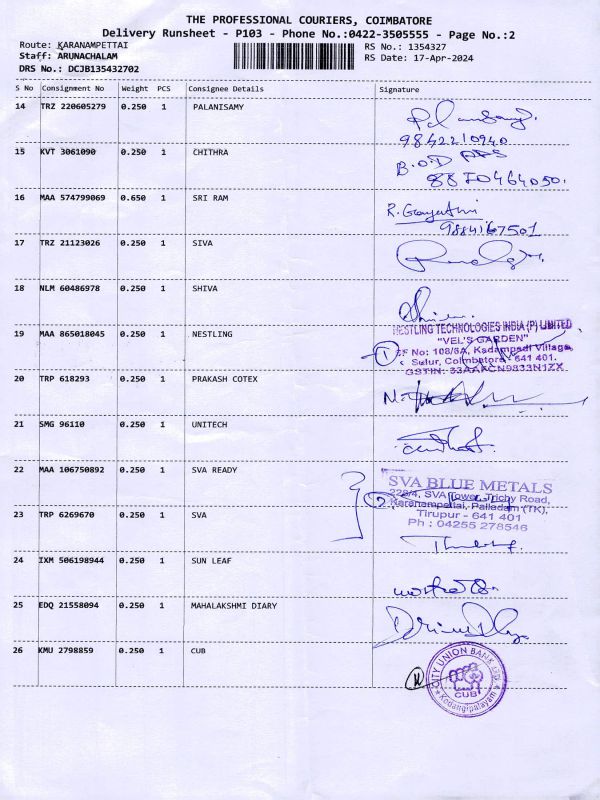 THE PROFESSIONAL COURIERS, COIMBATORE
Delivery Runsheet - P103 - Phone No.:0422-3505555 - Page No.:2
Route: KARANAMPETTAI RS No.: 1354327
Staff: ARUNACHALAM RS Date: 17-Apr-2024
DRS No.: DCJB135432702
S No Consignment No Weight PCS Consignee Details Signature
14 TRZ 220605279 0.250 1 PALANISAMY
9842210940
15 KVT 3061090 0.250 1 CHITHRA
B.O.D
8870464050.
16 MAA 574799069 0.650 1 SRI RAM
R. Gayathri
9884167501
17 TRZ 21123026 0.250 1 SIVA
18 NLM 60486978 0.250 1 SHIVA
19 MAA 865018045 0.250 1 NESTLING
NESTLING TECHNOLOGIES INDIA (P) LIMITED
"VEL'S GARDEN"
SF No: 108/8A, Kadampadi Village,
Sulur, Coimbatore - 641 401.
GSTIN: 33AAFCN9833N1ZX
20 TRP 618293 0.250 1 PRAKASH COTEX
21 SMG 96110 0.250 1 UNITECH
22 MAA 106750892 0.250 1 SVA READY
SVA BLUE METALS
228/4, SVA Tower, Trichy Road,
Karanampettai, Palladam (TK),
Tirupur - 641 401
Ph : 04255 278546
23 TRP 6269670 0.250 1 SVA
24 IXM 506198944 0.250 1 SUN LEAF
25 EDQ 21558094 0.250 1 MAHALAKSHMI DIARY
26 KMU 2798859 0.250 1 CUB
CITY UNION BANK LTD
CUB
Kodangipalayam